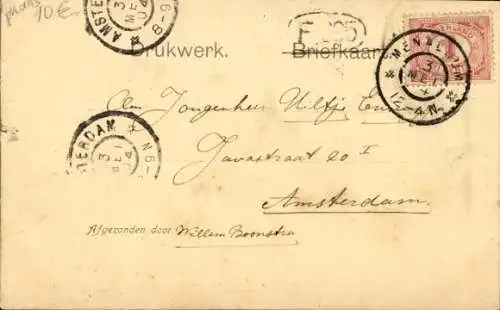 10 €
AMSTE
3
ME
04
8-9
Drukwerk.
Briefkaar
MENALDUM
3
MEI
4
12-4N.
Aan Jongenheer
Javastraat 20 I
Amsterdam.
STERDAM
3
MEI
04
Afgezonden door Willem Boonstra